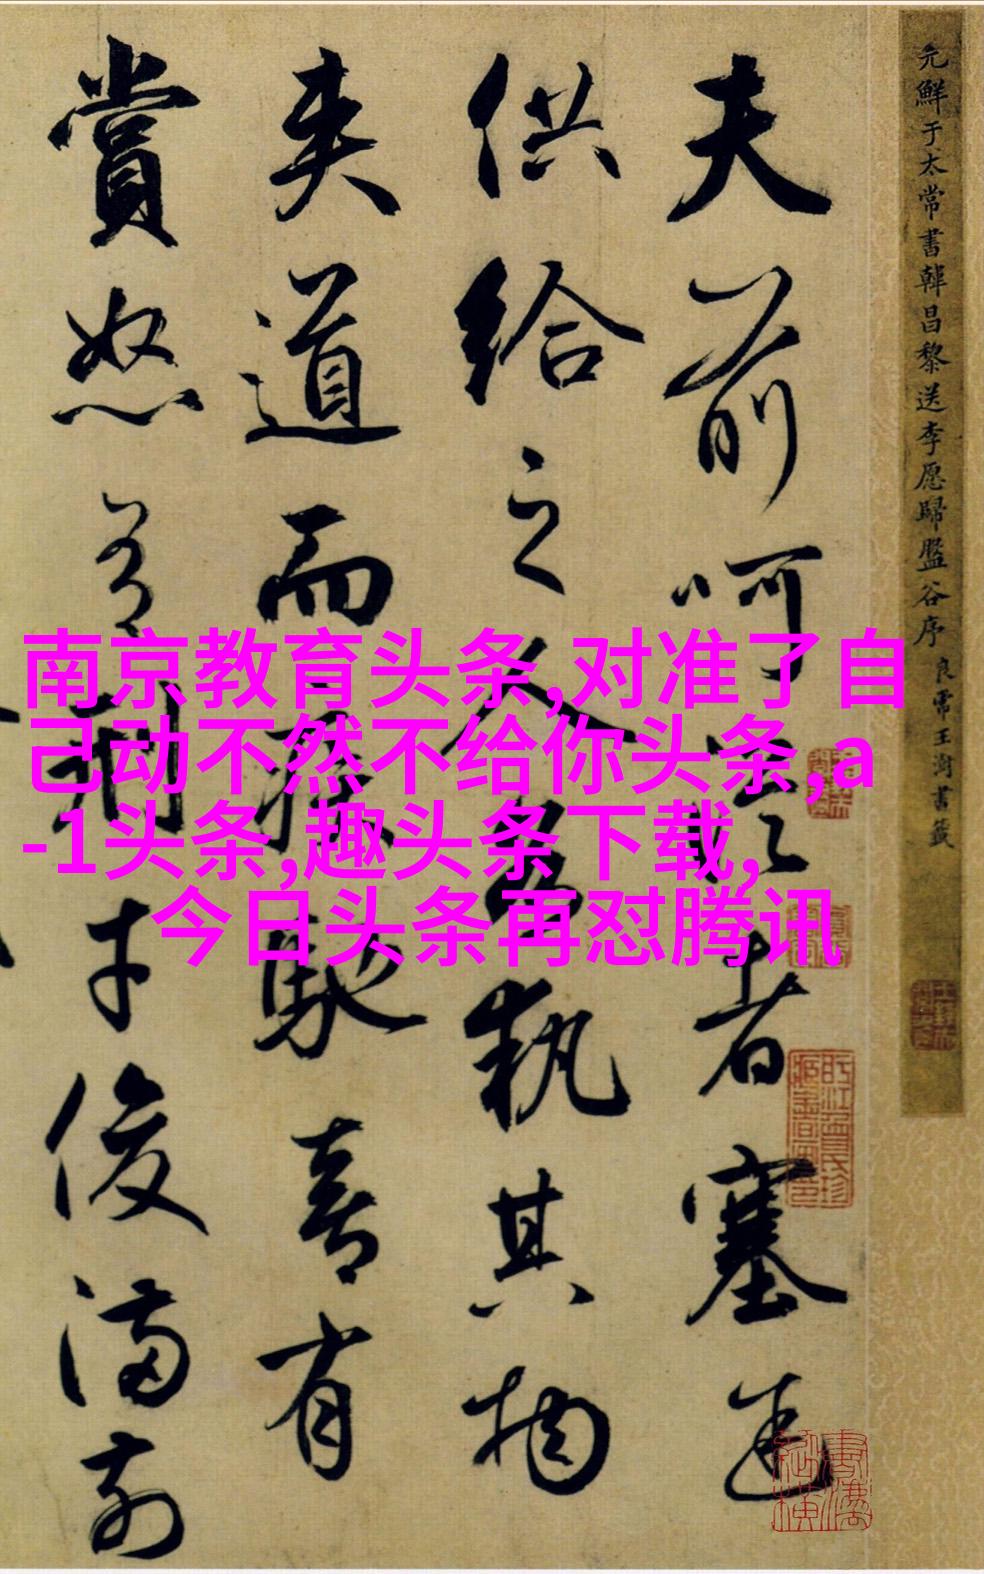 元鮮于太常書韓昌黎送李愿歸盤谷序 良常王澍書籤
夫前呵從者塞途
供給之人各執其物
夾道而疾馳喜有
賞怒有刑才俊滿前
南京教育头条,对准了自
己动不然不给你头条,a
-1头条,趣头条下载,
今日头条再怼腾讯